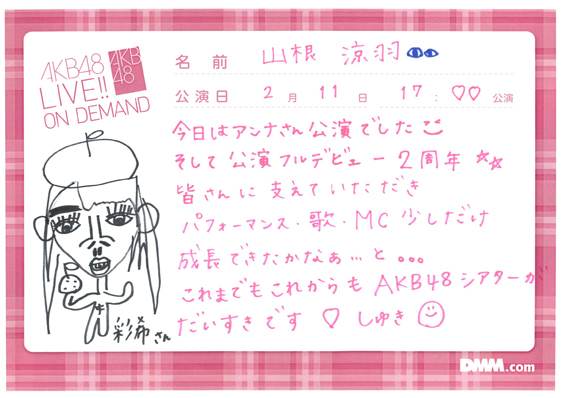 AKB48
LIVE!!
ON DEMAND
AKB
48
名前 山根 涼羽
公演日 2月 11日 17:♡♡ 公演
今日はアンナさん公演でした
そして公演フルデビュー2周年☆☆
皆さんに支えていただき
パフォーマンス・歌・MC少しだけ
成長できたかなぁ…と。。。
これまでもこれからもAKB48シアターが
だいすきです ♡ しゅき
彩希さん
DMM.com